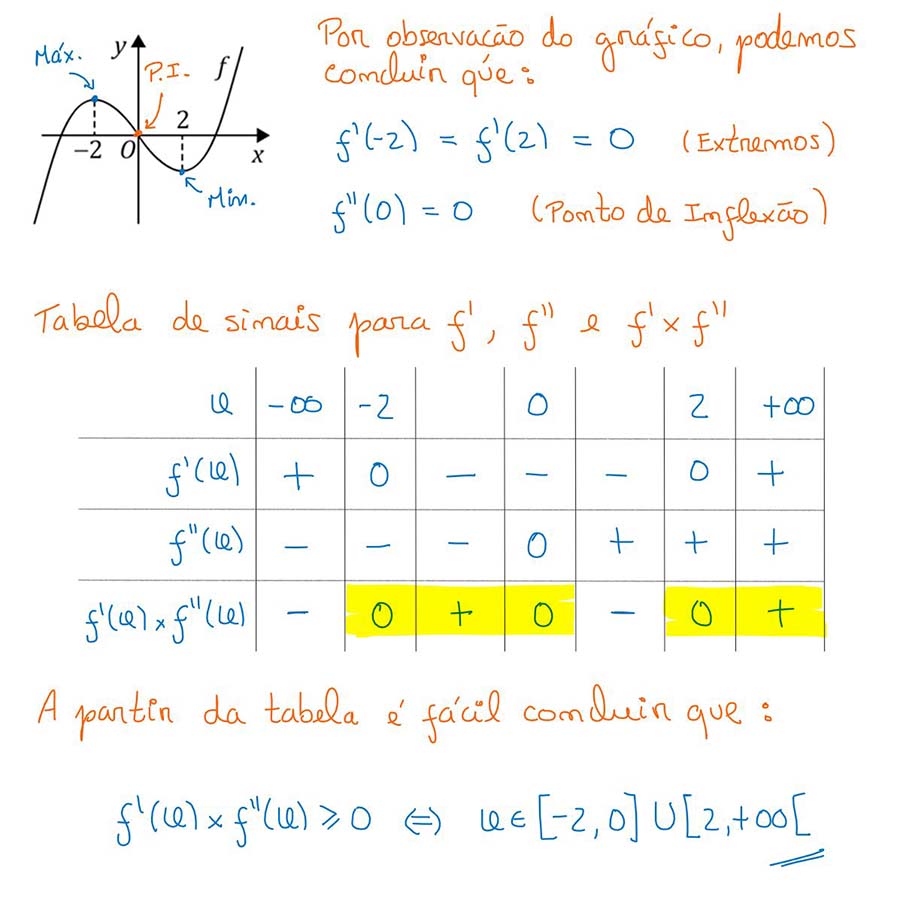 Máx.
y
P.I.
f
2
-2
O
x
Mín.
Por observação do gráfico, podemos
concluir qué:
f'(-2) = f'(2) = 0 (Extremos)
f''(0) = 0 (Ponto de Inflexão)
Tabela de sinais para f', f'' e f' × f''
x -∞ -2 0 2 +∞
f'(x) + 0 - - - 0 +
f''(x) - - - 0 + + +
f'(x) × f''(x) - 0 + 0 - 0 +
A partir da tabela é fácil concluir que:
f'(x) × f''(x) ⩾ 0 ⇔ x ∈ [-2,0] U [2,+∞[